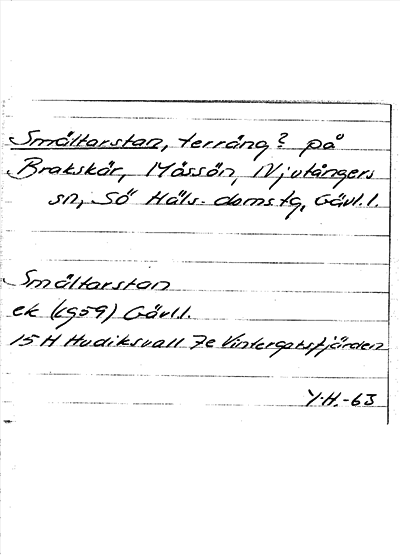 Småltarstan, terräng? på
Brakskär, Mössön, Njutångers
sn, Sö Häls. doms tg, Gävl.l.
Småltarstan
ek (1959) Gävl.l.
15 H Hudiksvall 7e Vintergatsfjärden
Y.H.-63